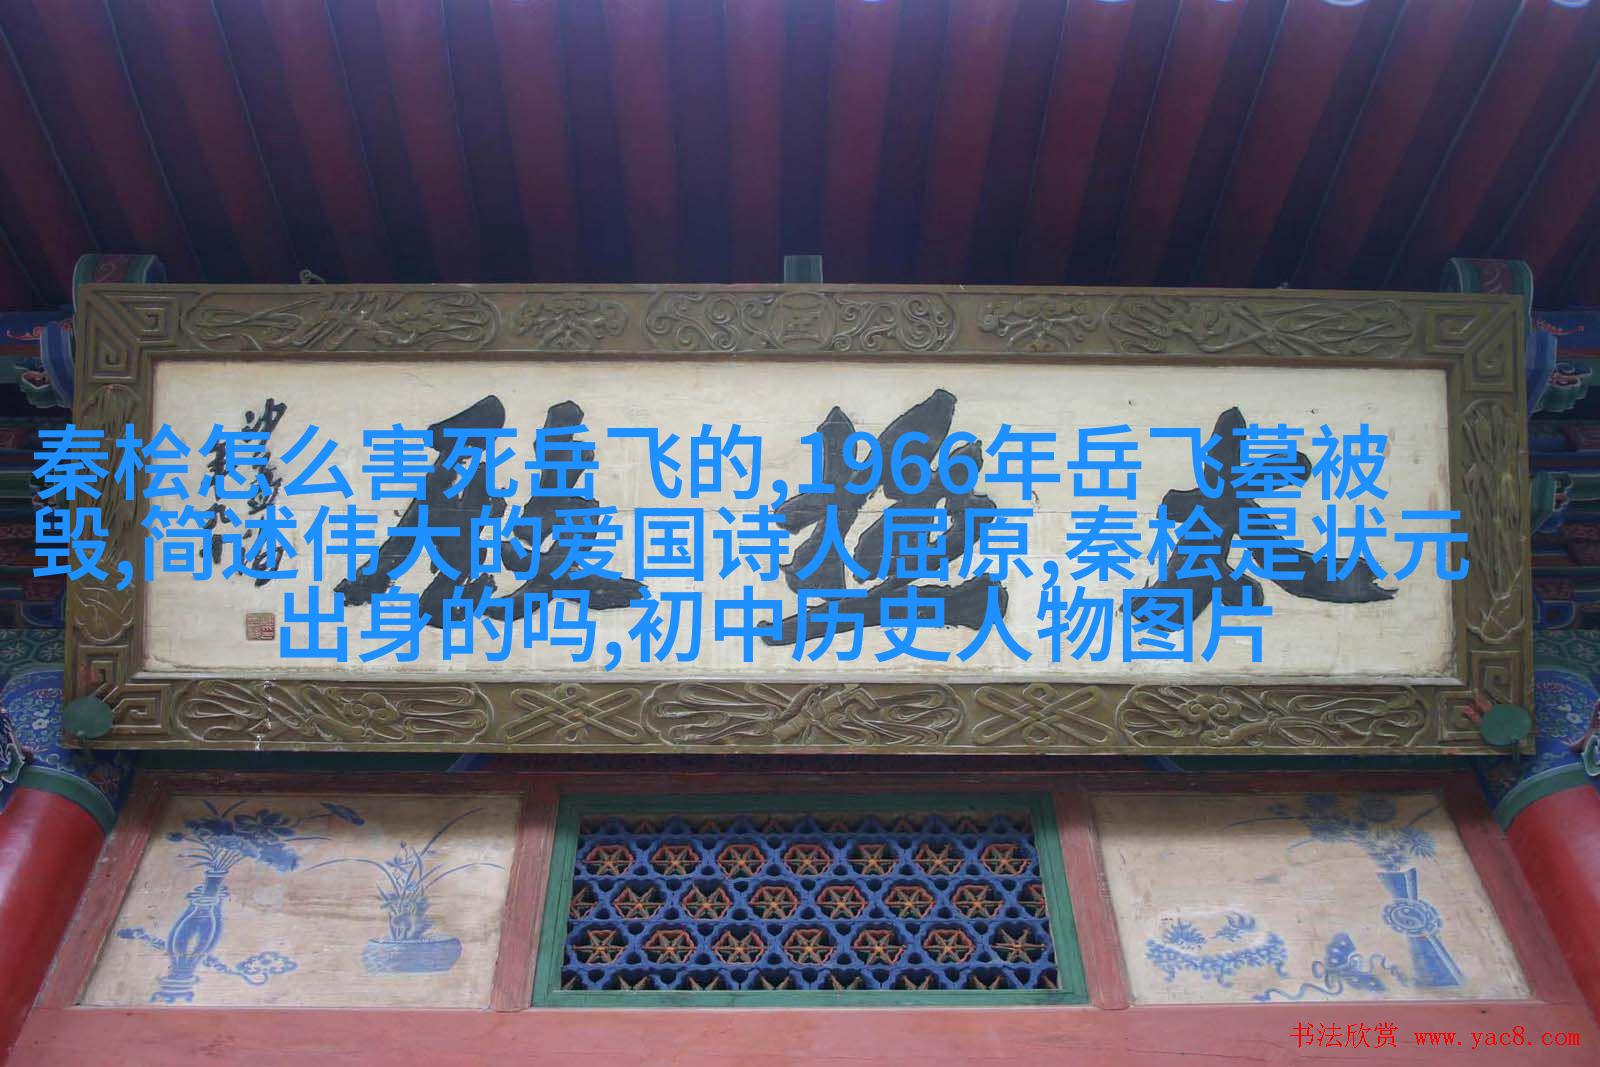 秦桧怎么害死岳飞的,1966年岳飞墓被
毁,简述伟大的爱国诗人屈原,秦桧是状元
出身的吗,初中历史人物图片
书法欣赏 www.yac8.com